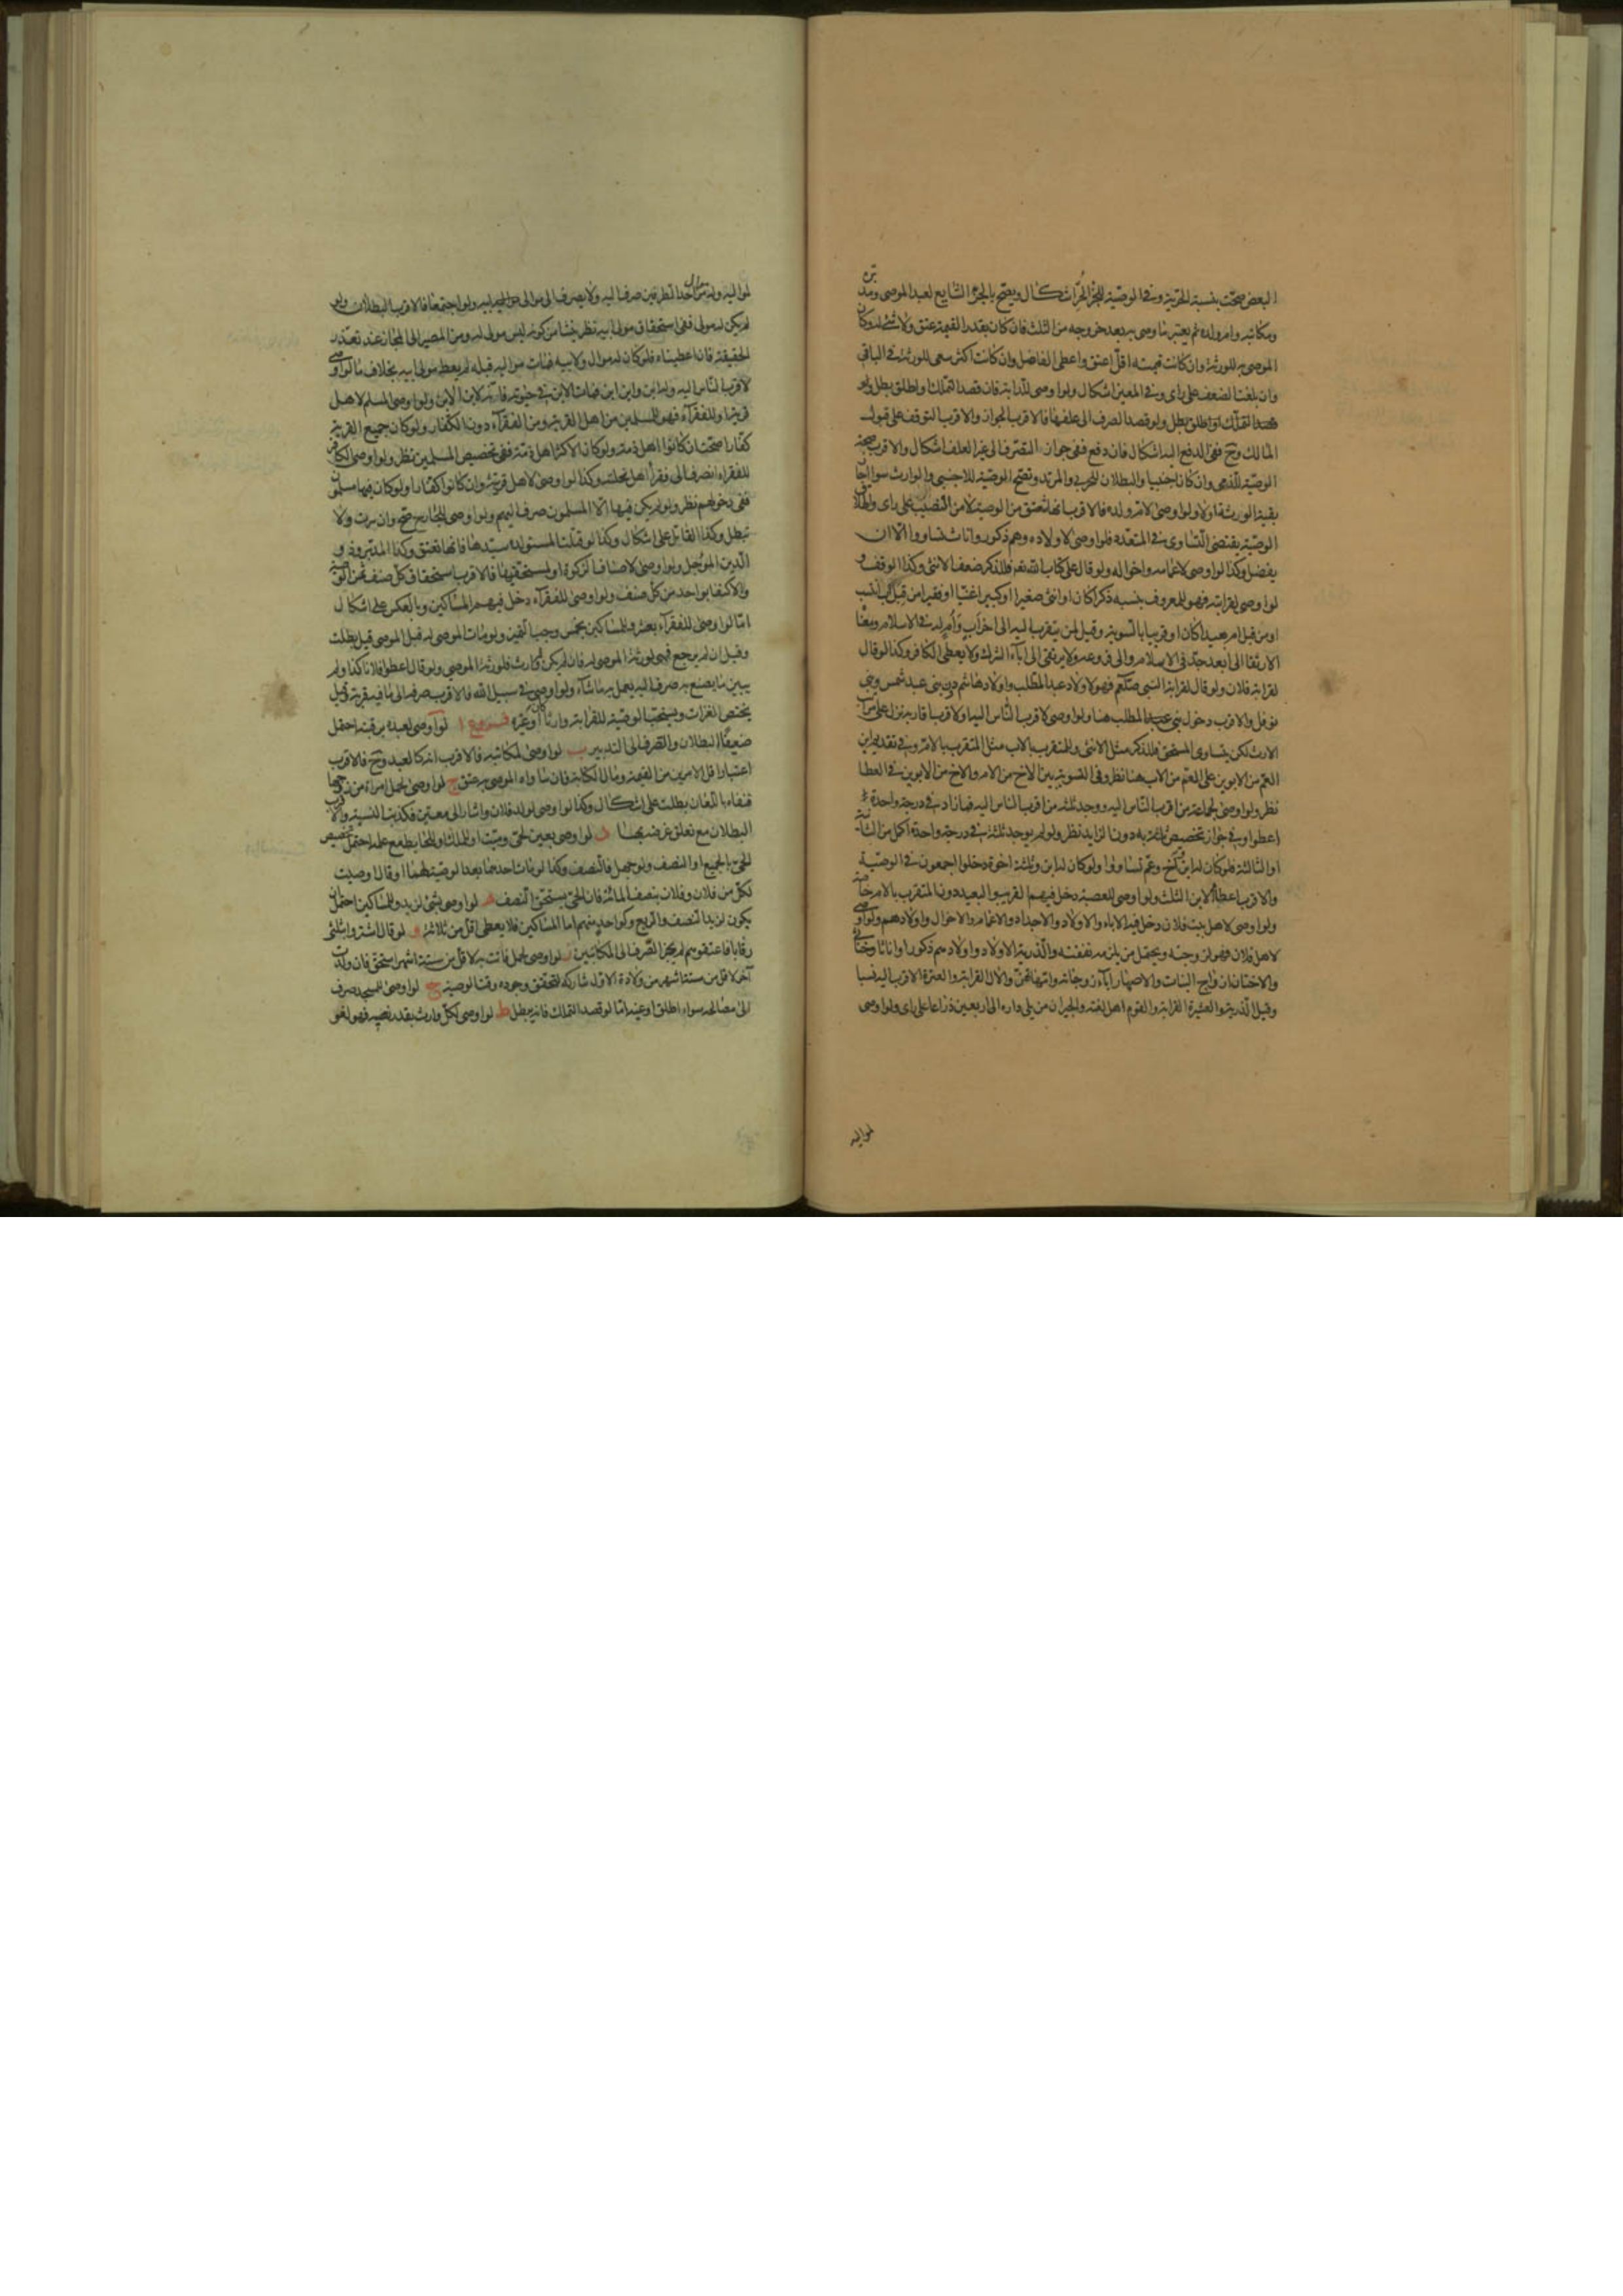 البعض صحّت بنسبة الحرّية وفي الوصيّة للجزء الحرّ اشكال ويصحّ بالجزء الشايع لعبد الموصي ومدبّره
ومكاتبه وام ولده ثم يعتبر ما وصى به بعد خروجه من الثلث فان كان بقدر القيمة عتق ولا شئ له وكان
الموصى به للورثة وان كانت قيمته اقلّ اعتق واعطى الفاضل وان كانت اكثر سعى للورثة في الباقي
وان بلغت الضعف على راى وفي المعين اشكال ولو اوصى للدابة فان قصد التملك او اطلق بطل ولو
قصد الصرف الى علفها فالاقرب الجواز والاقرب التوقف على قبول
المالك وح ففي الدفع اليه اشكال فان دفع ففي جواز التصرف الى غير العلف اشكال والاقرب صحة
الوصيّة للذمى وان كان اجنبيا والبطلان للحربى والمرتد وتصحّ الوصيّة للاجنبى والوارث سواء اجاز
بقية الورثة او لا ولو اوصى لام ولده فالاقرب انها تعتق من الوصية لا من النصيب على راى واطلاق
الوصيّة يقتضى التساوى في المتعدّد فلو اوصى لاولاده وهم ذكور واناث تساووا الّا ان
يفضل وكذا لو اوصى لاعمامه واخواله ولو قال على كتاب الله فللذكر ضعف الانثى وكذا الوقف و
لو اوصى لقرابته فهو للمعروف بنسبه ذكرا كان او انثى صغيرا او كبيرا غنيّا او فقيرا من قبل اب انتسب
او من قبل ام بعيدا كان او قريبا بالسوية وقيل لمن يتقرب اليه الى اخر اب وام له في الاسلام ومعناه
الارتقا الى ابعد جدّ في الاسلام والى فروعه ولا يرتقى الى اباء الشرك ولا يعطى الكافر وكذا لو قال
لقرابة فلان ولو قال لقرابة النبى صلعم فهو لاولاد عبد المطلب واولاد هاشم دون بنى عبد شمس وبنى
نوفل والاقرب دخول بنى المطلب هنا ولو اوصى لاقرب الناس اليه او لاقرب اقاربه نزل على مراتب
الارث لكن يتساوى المستحق فللذكر مثل الانثى وللمتقرب بالاب مثل المتقرب بالام وفي تقديم ابن
العم من الابوين على العم من الاب هنا نظر وفي التسوية بين الاخ من الام والاخ من الابوين في العطا
نظر ولو اوصى لجماعة من اقرب الناس اليه ووجد ثلثة من اقرب الناس اليه فما زاد في درجة واحدة
اعطوا وفي جواز تخصيص ثلثة به دون الزايد نظر ولو لم يوجد ثلثة في درجة واحدة اكمل من الثانية
او الثالثة فلو كان له ابن واخ وعم تساووا ولو كان له ابن وثلثة اخوة دخلوا اجمعون في الوصيّة
والاقرب اعطاء الابن الثلث ولو اوصى للعصبة دخل فيهم القريب والبعيد دون المتقرب بالام خاصة
ولو اوصى لاهل بيت فلان دخل فيه الاباء والاولاد والاجداد والاعمام والاخوال واولادهم ولو اوصى
لاهل فلان فهو لزوجته ويحتمل من يلزمه نفقته والذرية الاولاد واولادهم ذكورا واناثا وخناثى
والاختان ازواج البنات والاصهار اباء زوجاته وامهاتهنّ والال القرابة والعترة الاقرب اليه نسبا
وقيل الذرية والعشيرة القرابة والقوم اهل لغته والجيران من يلى داره الى اربعين ذراعا على راى ولو اوصى
لمواليه
لمواليه وله من احد الطرفين صرف اليه ولا يصرف الى موالى ابيه ولو اجتمعا فالاقرب البطلان ولو
لم يكن له مولى ففي استحقاق مولى ابيه نظر ينشا من كونه ليس مولى له ومن المصير الى المجاز عند تعذر
الحقيقة فان اعطيناه فلو كان له موال ولابيه فمات مواليه قبله لم يعط مولى ابيه بخلاف ما لو اوصى
لاقرب الناس اليه وله ابن وابن ابن فمات الابن في حيوته فانه لابن الابن ولو اوصى المسلم لاهل
قرية او للفقراء فهو للمسلمين من اهل القرية ومن الفقراء دون الكفار ولو كان جميع القرية
كفّارا صحّت ان كانوا اهل ذمة ولو كان الاكثر اهل ذمة ففي تخصيص المسلمين نظر ولو اوصى الكافر
للفقراء انصرف الى فقراء اهل نحلته وكذا لو اوصى لاهل قريته وان كانوا كفّارا ولو كان فيها مسلمون
ففي دخولهم نظر ولو لم يكن فيها الا المسلمون صرف اليهم ولو اوصى للجارح صح وان سرت ولا
تبطل وكذا القاتل على اشكال وكذا لو قتلت المستولدة سيّدها فانها تعتق وكذا المدبّر و
الدين المؤجل ولو اوصى لاصناف الزكوة او لمستحقيها فالاقرب استحقاق كل صنف ثمن الوصية
والاكتفا بواحد من كل صنف ولو اوصى للفقراء دخل فيهم المساكين وبالعكس على اشكال
امّا لو اوصى للفقراء بعشر وللمساكين بخمس وجب التميز ولو مات الموصى له قبل الموصى قيل بطلت
وقيل ان لم يرجع فهى لورثة الموصى له فان لم يكن له وارث فلورثة الموصى ولو قال اعطوا فلانا كذا ولم
يبين ما يصنع به صرف اليه يعمل به ما شاء ولو اوصى في سبيل الله فالاقرب صرفه الى ما فيه قربة وقيل
يختص الغزات ويستحبّ الوصيّة للقرابة وارثا كان او غيره فروع ا لو اوصى لعبده برقبته احتمل
ضعيفا البطلان والصرف الى التدبير ب لو اوصى لمكاتبه فالاقرب انه كالعبد وح فالاقرب
اعتبار اقل الامرين من القيمة ومال الكتابة فان ساواه الموصى به عتق ج لو اوصى لحمل امراة من زوجها
فنفاه باللعان بطلت على اشكال وكذا لو اوصى لولد فلان واشار الى معين فكذب النسبة والاقرب
البطلان مع تعلق غرضه بها د لو اوصى بعين لحى وميت او للملك او للحايط مع علمه احتمل تخصيص
الحى بالجميع او النصف ولو جهل فالنصف وكذا لو مات احدهما بعد الوصية لهما او قال اوصيت
لكل من فلان وفلان بنصف المائة فان الحى يستحق النصف ه لو اوصى بشئ لزيد وللمساكين احتمل ان
يكون لزيد النصف والربع وكواحد منهم اما المساكين فلا يعطى اقل من ثلاثة و لو قال اشتروا بثلثى
رقابا فاعتقوهم لم يجز الصرف الى المكاتبين ز لو اوصى لحمل فاتت به لاقل من ستة اشهر استحق فان ولدت
اخر لاقل من ستة اشهر من ولادة الاول شاركه لتحقق وجوده وقت الوصية ح لو اوصى للمسجد صرف
الى مصالحه سواء اطلق او عينه امّا لو قصد التملك فانه يبطل ط لو اوصى لكل وارث بقدر نصيبه فهو لغو